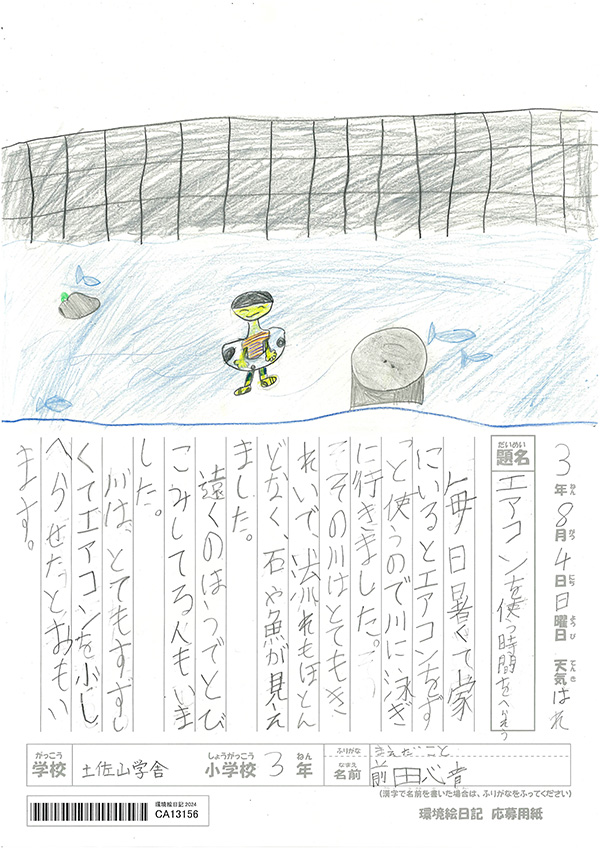 3年8月4日日曜日 天気はれ
ねん がつ にち ようび てんき
だいめい
題名
エアコンを使う時間をへらそう
毎日暑くて家
にいるとエアコンをず
っと使うので川に泳ぎ
に行きました。
その川はとてもき
れいで、流れもほとん
どなく、石や魚が見え
ました。
遠くのほうでとび
こみしてる人もいま
した。
川は、とてもすずし
くてエアコンを少し
へらせたとおもい
ます。
がっこう しょうがっこう ねん
学校 土佐山学舎 小学校 3年
ふりがな まえだこと
なまえ
名前 前田心音
(漢字で名前を書いた場合は、ふりがなをふってください)
環境絵日記2024
CA13156
環境絵日記 応募用紙